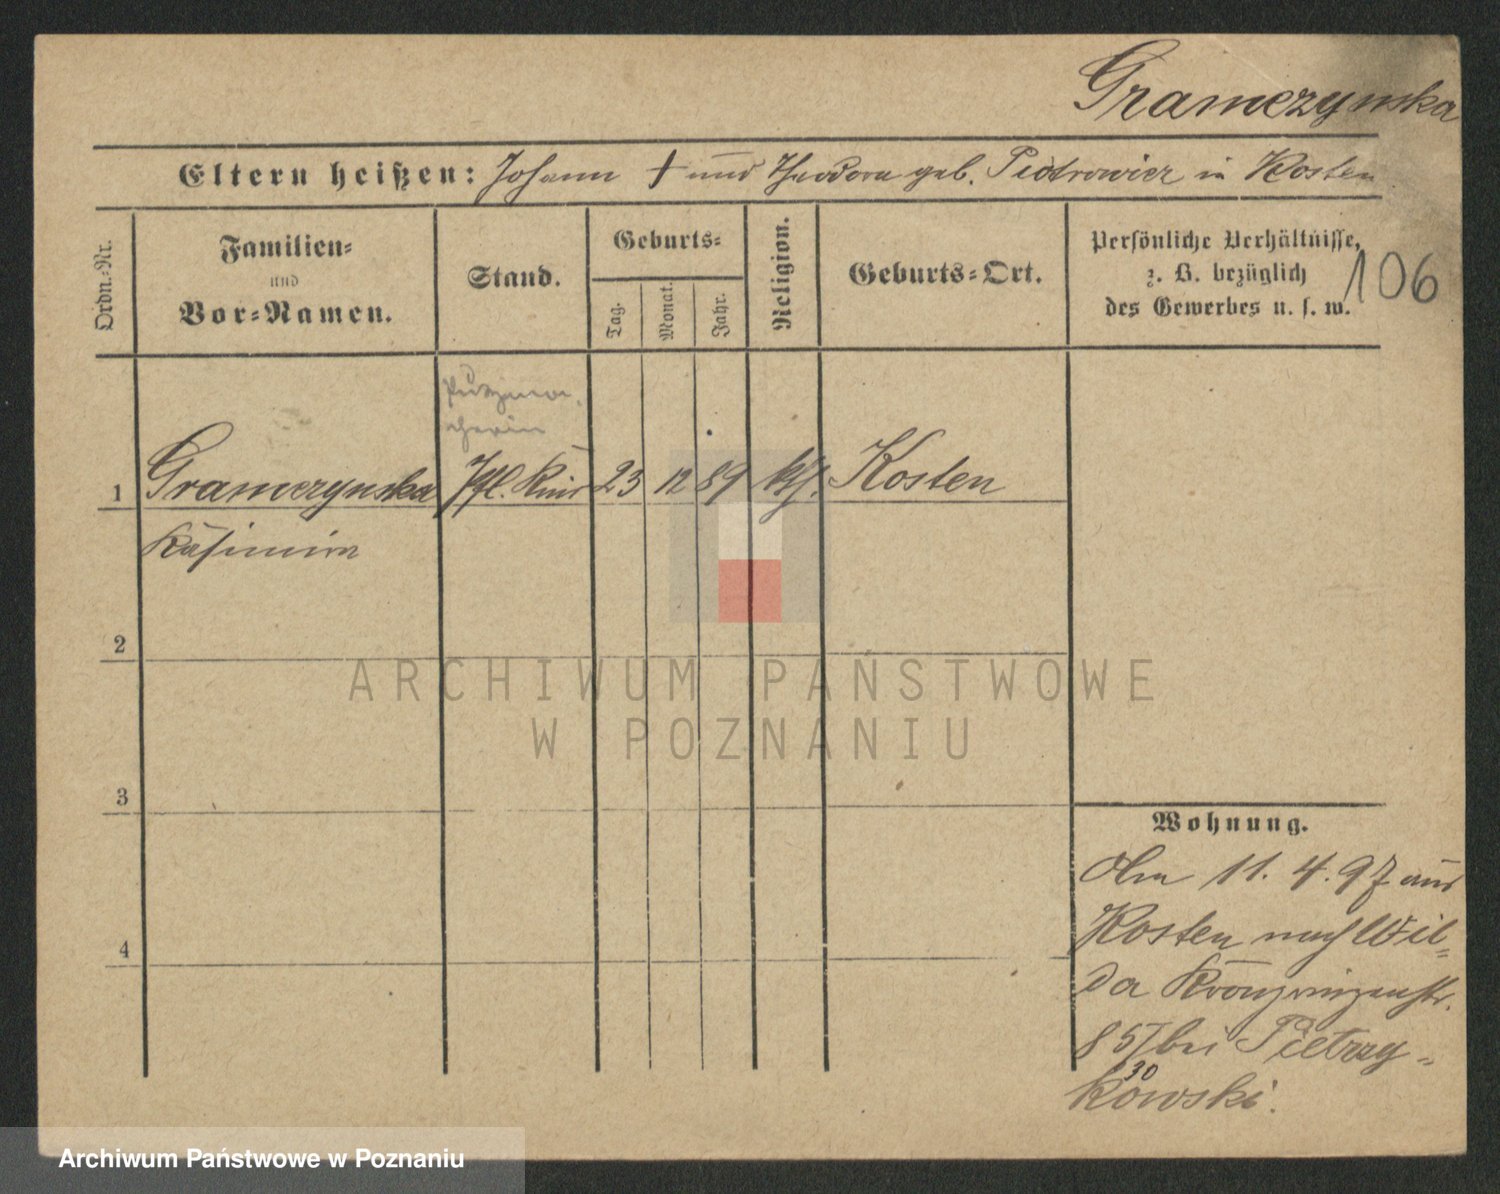 Gramczynska
Eltern heißen: Johann + und Theodora geb. Piotrowicz in Kosten
Ordn.-Nr.
Familien-
und
Vor-Namen.
Stand.
Geburts-
Tag.
Monat.
Jahr.
Religion.
Geburts-Ort.
Persönliche Verhältnisse,
z. B. bezüglich
des Gewerbes u. s. w.
106
Putzma-
cherin
1 Gramczynska Pfl. Kind 23 12 89 kth. Kosten
Kasimira
2
3
4
Wohnung.
Am 11. 4. 97 aus
Kosten nach Wil-
da Kronprinzenstr.
857 bei Pietrzy-
30
kowski.
ARCHIWUM PAŃSTWOWE
W POZNANIU
Archiwum Państwowe w Poznaniu